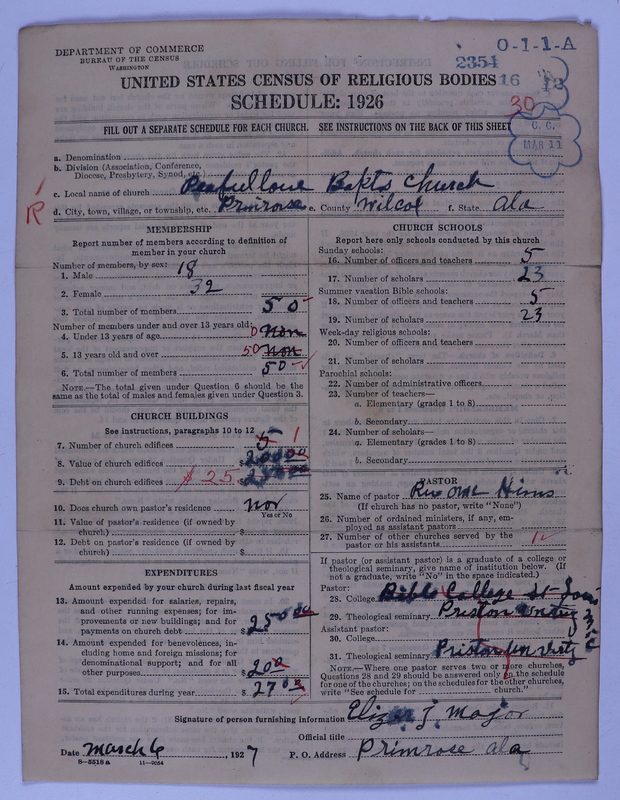 DEPARTMENT OF COMMERCE
BUREAU OF THE CENSUS
WASHINGTON
O-1-1-A
2354
UNITED STATES CENSUS OF RELIGIOUS BODIES 16
SCHEDULE: 1926
30
C. C.
MAR 11
FILL OUT A SEPARATE SCHEDULE FOR EACH CHURCH. SEE INSTRUCTIONS ON THE BACK OF THIS SHEET
a. Denomination
b. Division (Association, Conference, Diocese, Presbytery, Synod, etc.)
c. Local name of church Church
R
d. City, town, village, or township, etc. Primrose e. County Wilcox f. State Ala
MEMBERSHIP
Report number of members according to definition of member in your church
Number of members, by sex:
1. Male 18
2. Female 32
3. Total number of members 50
Number of members under and over 13 years old:
4. Under 13 years of age 0 Non
5. 13 years old and over 50 Non
6. Total number of members 50
NOTE.—The total given under Question 6 should be the same as the total of males and females given under Question 3.
CHURCH BUILDINGS
See instructions, paragraphs 10 to 12
7. Number of church edifices 5 1
8. Value of church edifices $
9. Debt on church edifices $ 25
10. Does church own pastor's residence nor
Yes or No
11. Value of pastor's residence (if owned by church) $
12. Debt on pastor's residence (if owned by church) $
EXPENDITURES
Amount expended by your church during last fiscal year
13. Amount expended for salaries, repairs, and other running expenses; for improvements or new buildings; and for payments on church debt $ 250 00
14. Amount expended for benevolences, including home and foreign missions; for denominational support; and for all other purposes $
15. Total expenditures during year $
CHURCH SCHOOLS
Report here only schools conducted by this church
Sunday schools:
16. Number of officers and teachers 5
17. Number of scholars 23
Summer vacation Bible schools:
18. Number of officers and teachers 5
19. Number of scholars 23
Week-day religious schools:
20. Number of officers and teachers
21. Number of scholars
Parochial schools:
22. Number of administrative officers
23. Number of teachers—
a. Elementary (grades 1 to 8)
b. Secondary
24. Number of scholars—
a. Elementary (grades 1 to 8)
b. Secondary
PASTOR
25. Name of pastor
(If church has no pastor, write "None")
26. Number of ordained ministers, if any, employed as assistant pastors
27. Number of other churches served by the pastor or his assistants
If pastor (or assistant pastor) is a graduate of a college or theological seminary, give name of institution below. (If not a graduate, write "No" in the space indicated.)
Pastor:
28. College Bible College St
29. Theological seminary
Assistant pastor:
30. College
31. Theological seminary
NOTE.—Where one pastor serves two or more churches, Questions 28 and 29 should be answered only on the schedule for one of the churches; on the schedules for the other churches, write "See schedule for church."
Signature of person furnishing information J Major
Official title
Date March 6, 1927
P. O. Address Primrose Ala
8-5518a 11-9054